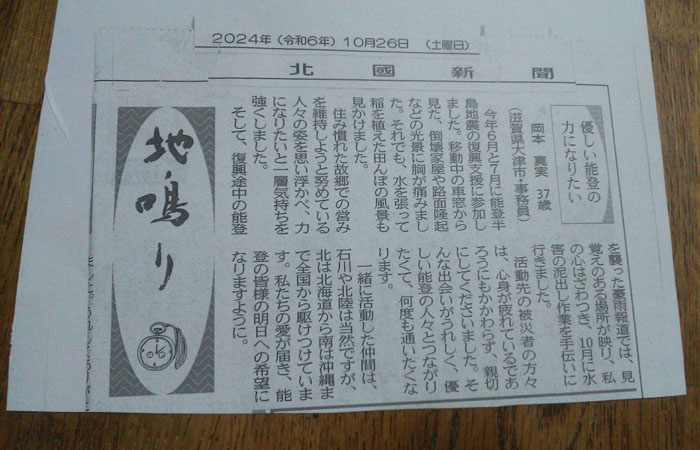 2024年（令和6年）10月26日　（土曜日）
北國新聞
地鳴り
優しい能登の
力になりたい
岡本　真実　37歳
（滋賀県大津市・事務員）
今年6月と7月に能登半
島地震の復興支援に参加し
ました。移動中の車窓から
見た、倒壊家屋や路面隆起
などの光景に胸が痛みまし
た。それでも、水を張って
稲を植えた田んぼの風景も
見かけました。
住み慣れた故郷での営み
を維持しようと努めている
人々の姿を思い浮かべ、力
になりたいと一層気持ちを
強くしました。
そして、復興途中の能登
を襲った豪雨報道では、見
覚えのある場所が映り、私
の心はざわつき、10月に水
害の泥出し作業を手伝いに
行きました。
活動先の被災者の方々
は、心身が疲れているであ
ろうにもかかわらず、親切
にしてくださいました。そ
んな出会いがうれしく、優
しい能登の人々とつながり
たくて、何度も通いたくな
ります。
一緒に活動した仲間は、
石川や北陸は当然ですが、
北は北海道から南は沖縄ま
で全国から駆けつけていま
す。私たちの愛が届き、能
登の皆様の明日への希望に
なりますように。